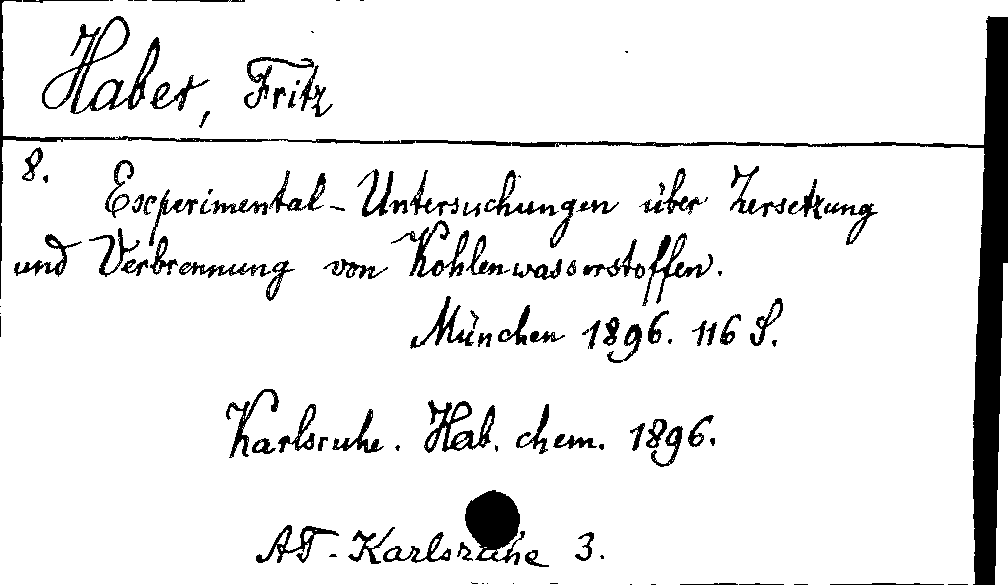 Haber, Fritz
8.
Experimental-Untersuchungen über Zersetzung
und Verbrennung von Kohlenwasserstoffen.
München 1896. 116 S.
Karlsruhe. Hab. chem. 1896.
AT-Karlsruhe 3.